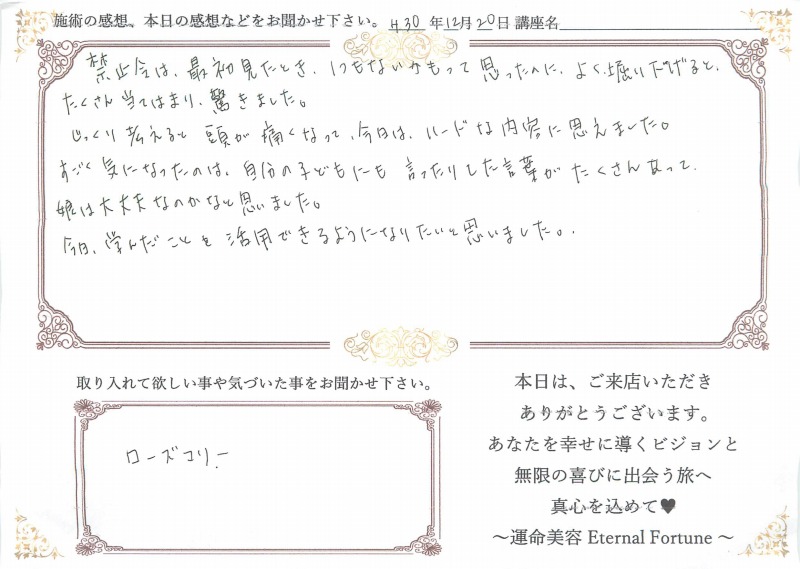 施術の感想、本日の感想などをお聞かせ下さい。 H30 年12月20日 講座名
禁止令は、最初見たとき、1つもないかもって思ったのに、よく堀り下げると、
たくさん当てはまり、驚きました。
じっくり考えると頭が痛くなって、今日は、ハードな内容に思えました。
すごく気になったのは、自分の子どもにも言ったりした言葉がたくさんあって、
娘は大丈夫なのかなと思いました。
今日、学んだことを活用できるようになりたいと思いました。
取り入れて欲しい事や気づいた事をお聞かせ下さい。
ローズコリー
本日は、ご来店いただき
ありがとうございます。
あなたを幸せに導くビジョンと
無限の喜びに出会う旅へ
真心を込めて♥
～運命美容 Eternal Fortune ～